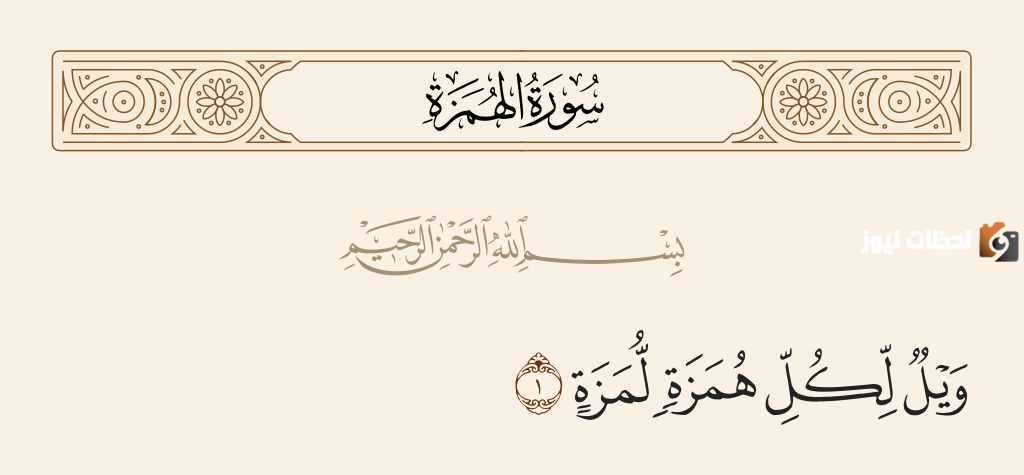 سُورَةُ الهُمَزَةِ
بِسْمِ ٱللَّهِ ٱلرَّحْمَٰنِ ٱلرَّحِيمِ
لحظات نيوز
وَيْلٌ لِّكُلِّ هُمَزَةٍ لُّمَزَةٍ ١